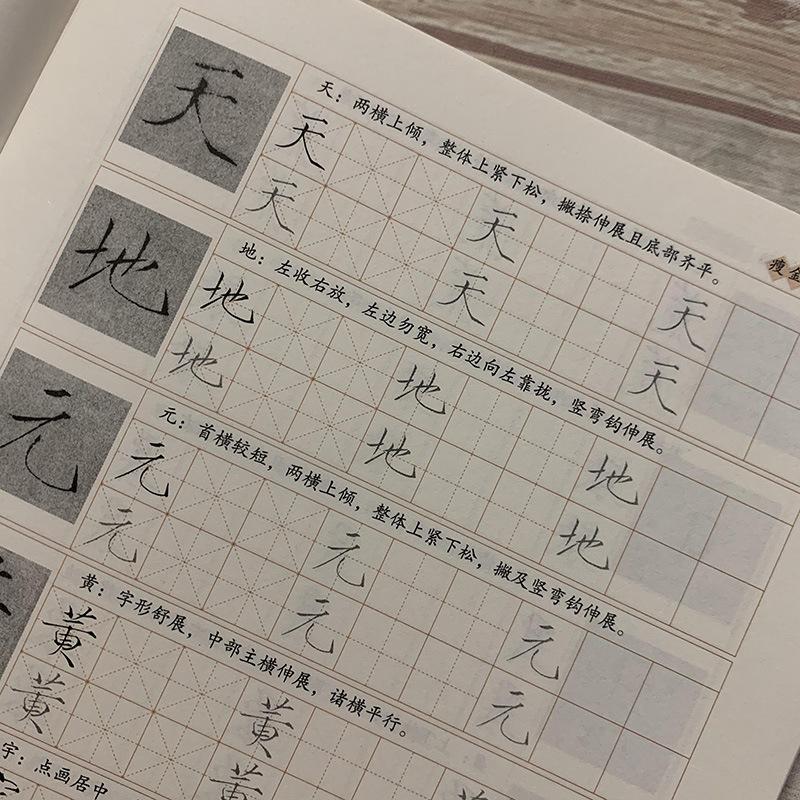 天
天：两横上倾，整体上紧下松，撇捺伸展且底部齐平。
天 天 天
天 天 天
瘦金
地
地：左收右放，左边勿宽，右边向左靠拢，竖弯钩伸展。
地 地 地
地 地 地
元
元：首横较短，两横上倾，整体上紧下松，撇及竖弯钩伸展。
元 元 元
元 元 元
黄：字形舒展，中部主横伸展，诸横平行。
黄 黄
黄 黄
宇：点画居中